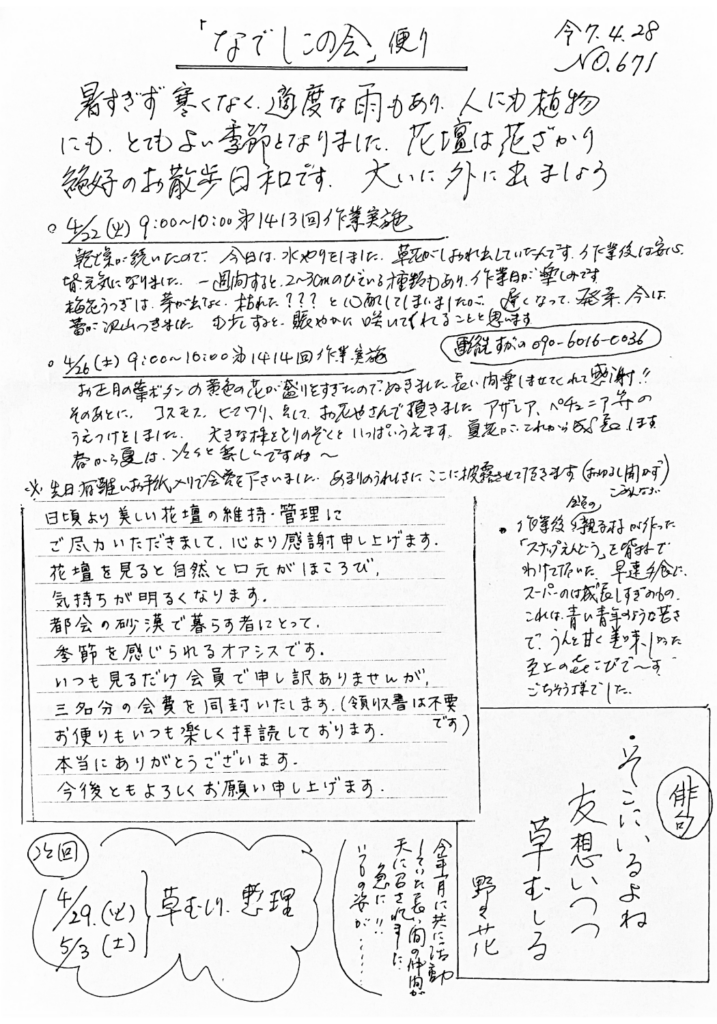 「なでしこの会」便り
令7.4.28
NO.671
暑すぎず寒くなく、適度な雨もあり、人にも植物
にも、とてもよい季節となりました。花壇は花ざかり
絶好のお散歩日和です。大いに外に出ましょう
○4/22(火)9:00~10:00第1413回作業実施
乾燥が続いたので、今日は、水やりをしました。草花がしおれ出していたんです。作業後は安心。
皆元気になりました。一週間すると、2~3cmのびている種類もあり、作業日が楽しみです
梅花うつぎは、芽が出なく、枯れた???と心配してしまいましたが、遅くなって、発芽、今は、
蕾が沢山つきました。もう少しすると、賑やかに咲いてくれることと思います
連絡すがの090-6016-0036
○4/26(土)9:00~10:00第1414回作業実施
お正月の葉ボタンの黄色の花が盛りをすぎたのでぬきました。長い間楽しませてくれて感謝!!
そのあとに、コスモス、ヒマワリ、そして、お花やさんで頂きました アザレア、ペチュニア等の
うえつけをしました。大きな株をとりのぞくといっぱいうえます。夏花が、これから
春から夏は、
※先日有難いお手紙入りで会費を下さいました。あまりのうれしさにここに披露させて頂きます(おゆるし聞かず)
ごめんなさい
日頃より美しい花壇の維持・管理に
ご尽力いただきまして、心より感謝申し上げます。
花壇を見ると自然と口元がほころび、
気持ちが明るくなります。
都会の砂漠で暮らす者にとって、
季節を感じられるオアシスです。
いつも見るだけ会員で申し訳ありませんが、
三名分の会費を同封いたします。(領収書は不要
です)
お便りもいつも楽しく拝読しております。
本当にありがとうございます。
今後ともよろしくお願い申し上げます。
会員の
・作業後、親子様が作った
「スナップえんどう」を皆さまで
わけて頂いた。早速夕食に。
スーパーのは成長しすぎのもの。
これは、青い青年のような若さ
で、うんと甘く美味しかった
至上の喜こびで~す
ごちそう様でした。
俳句
・そこにいるよね
友想いつつ
草むしる
野々花
今年一月に共に活動
していた長い間の仲間が
天に召されました
急に!!
いつもの姿が......
次回
4/29.(火)
5/3(土)
草むしり、整理